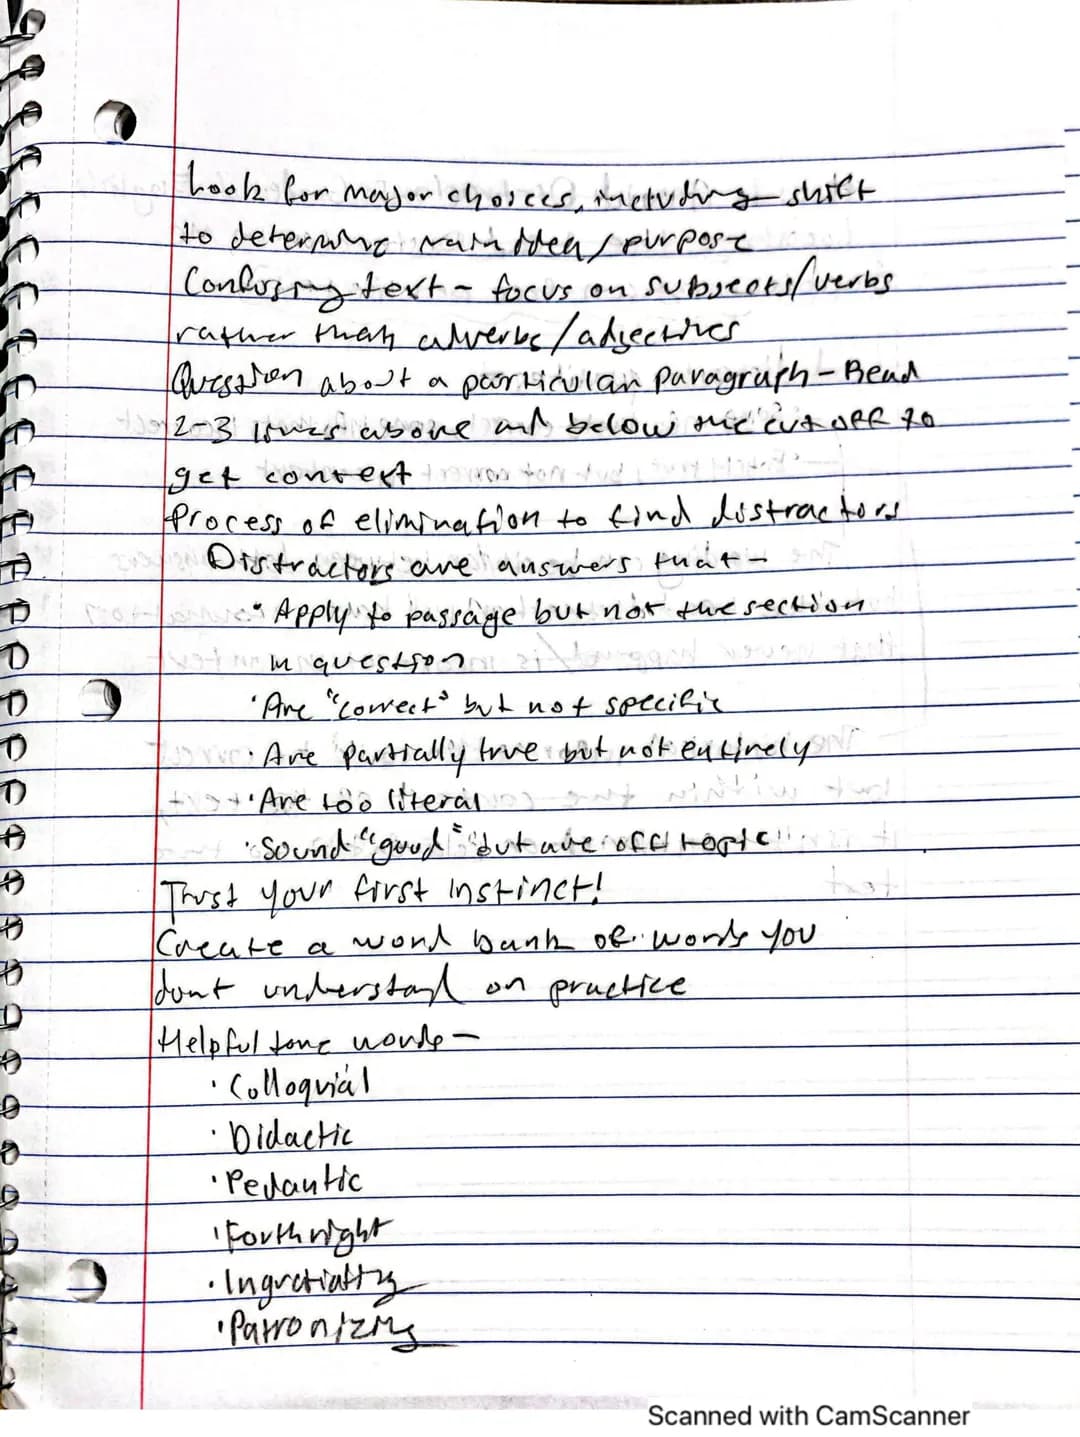 Look for major choices, including shift
to determine main idea/purpose
Confusing text - focus on subjects/verbs
rather than adverbs/adjectives
Question about a particular paragraph - Read
2-3 lines above and below the cut off to
get context
Process of elimination to find distractors
Distractors are answers that -
• Apply to passage but not the section
in question
• Are "correct" but not specific
• Are partially true but not entirely
• Are too literal
• Sound "good" but are off topic
Trust your first instinct!
Create a word bank of words you
dont understand on practice
Helpful tone words -
• Colloquial
• Didactic
• Pedantic
• Forthright
• Ingratiating
• Patronizing
Scanned with CamScanner